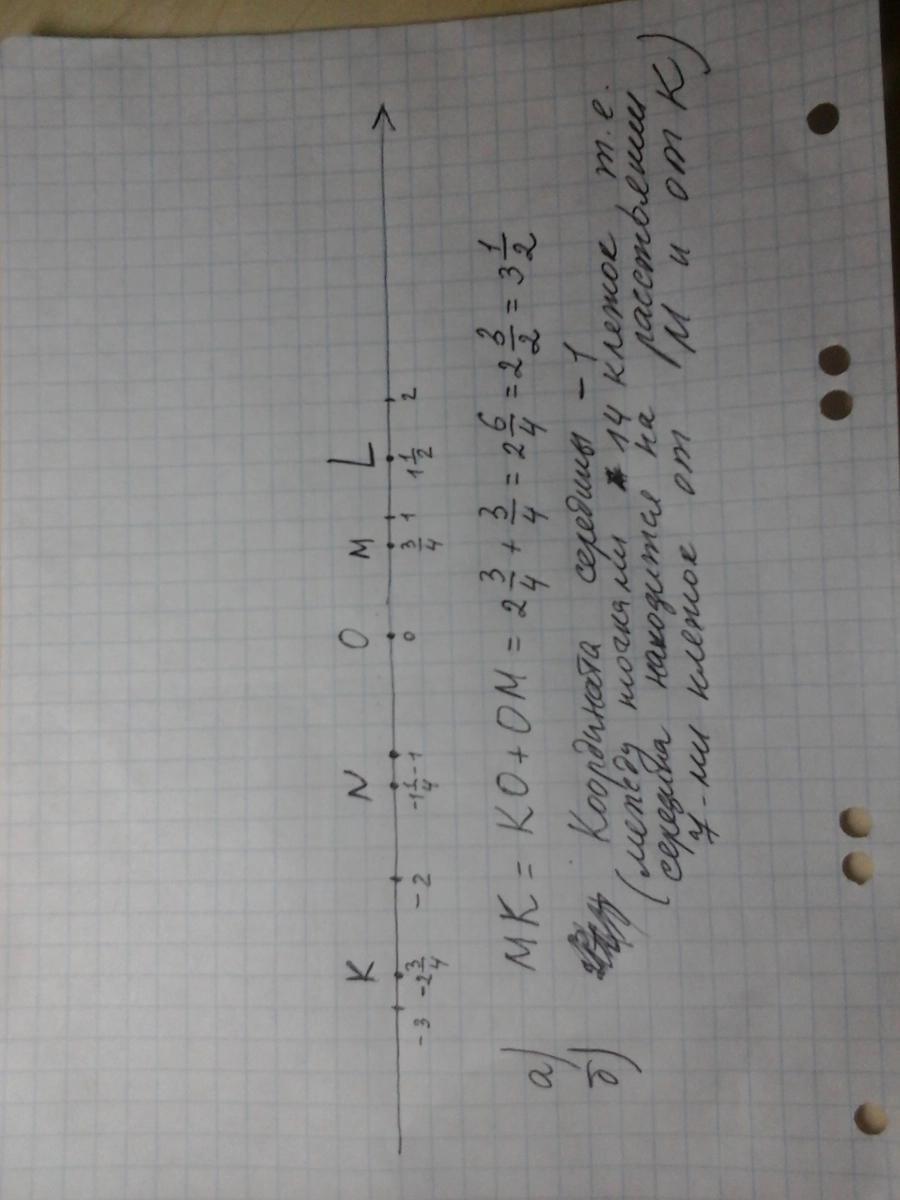 K N O M L
-3 -2 3/4 -2 -1 1/4 -1 0 3/4 1 1 1/2 2
а) MK = KO + OM = 2 3/4 + 3/4 = 2 6/4 = 2 3/2 = 3 1/2
б) Координата середины -1
(между точками 14 клеток т.е.
середина находится на расстоянии
7-ми клеток от M и от K)